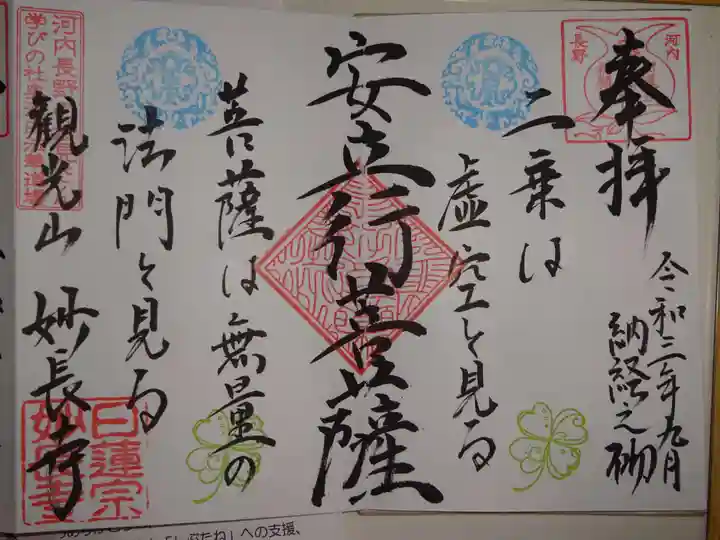 奉拝
令和三年九月
納経之砌
河内
長野
二乗は
虚空と見る
安立行菩薩
菩薩は無量の
法門と見る
観光山 妙長寺
河内長野
学びの社
日蓮宗
妙長寺
への支援、